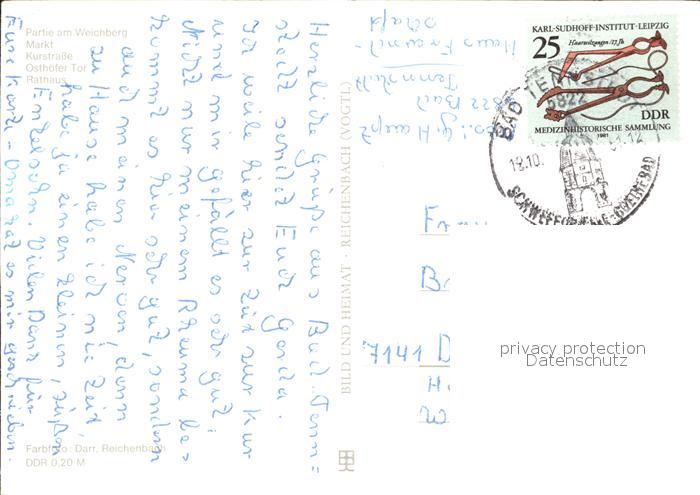 Partie am Weichberg
Markt
Kurstraße
Osthöfer Tor
Rathaus
Herzliche Grüße aus Bad Tenn=
stedt sendet Euch Gerda.
Ich weile hier zur Zeit zur Kur
und mir gefällt es sehr gut.
Nicht nur meinem Rheuma be=
kommt es hier sehr gut, sondern
auch meinen Nerven, denn
zu Hause habe ich nie Zeit
habe ja einen kleinen, süßen
Enkelsohn. Vielen Dank für
Eure Karte - Oma hat es mir geschrieben.
Farbfoto: Darr, Reichenbach
DDR 0,20 M
BILD UND HEIMAT · REICHENBACH (VOGTL)
G. Haupt
5822 Bad
Tennstedt
Haus Freund-
schaft
KARL-SUDHOFF-INSTITUT · LEIPZIG
25
Hauerzangen/17.Jh.
DDR
MEDIZINHISTORISCHE SAMMLUNG
1981
BAD TENNSTEDT
5822
19.10.
SCHWEFELQUELLE-GOETHEBAD
Fa
B
7141 D
H.
W
privacy protection
Datenschutz